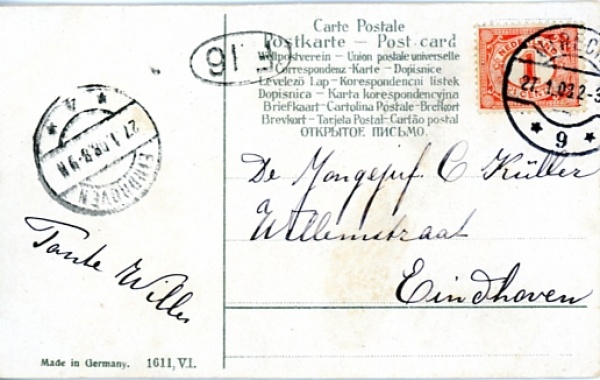 Carte Postale
Postkarte – Post card
Weltpostverein – Union postale universelle
Correspondenz-Karte – Dopisnice
Levelező Lap – Korespondencni listek
Dopisnica – Karta korespondencyjna
Briefkaart – Cartolina Postale – Brefkort
Brevkort – Tarjeta Postal – Cartão postal
ОТКРЫТОЕ ПИСЬМО.
F 16
NEDERLAND
27.1.
9
27.1.
8-9N
EINDHOVEN
4
De Jongejuf. C Küller
Willemstraat
Eindhoven
Tante Willes
Made in Germany. 1611, V.I.